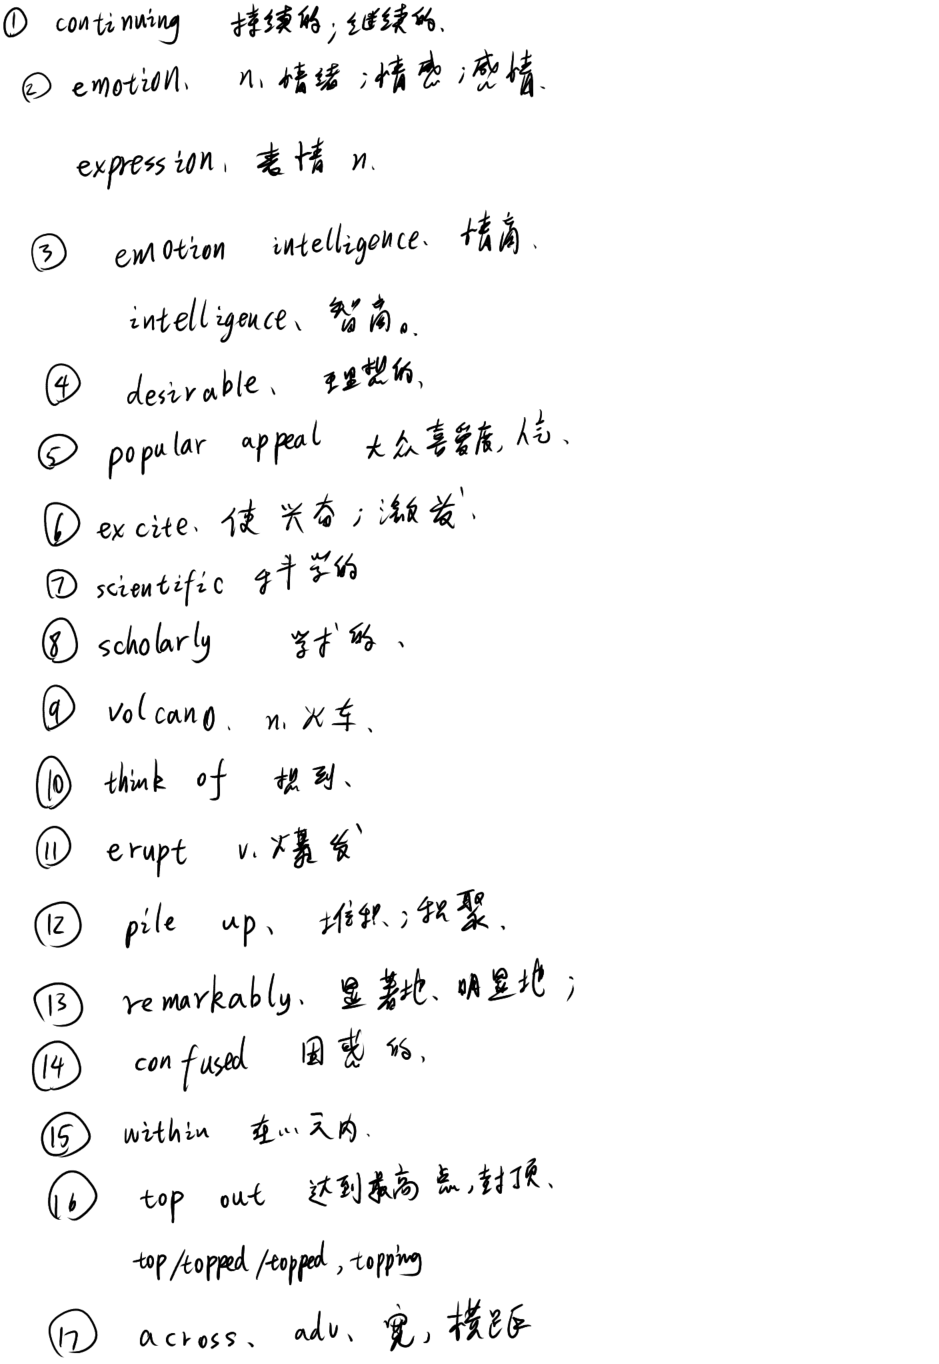 ① continuing 持续的;继续的.
② emotion. n.情绪;情感;感情.
expression. 表情 n.
③ emotion intelligence. 情商.
intelligence、智商。.
④ desirable、理想的,
⑤ popular appeal 大众喜爱度,人气、
⑥ excite. 使兴奋;激发.
⑦ scientific 科学的
⑧ scholarly 学术的、
⑨ volcano. n.火车、
⑩ think of 想到、
⑪ erupt v.爆发
⑫ pile up、堆积、;积聚.
⑬ remarkably. 显著地、明显地;
⑭ confused 困惑的,
⑮ within 在…天内.
⑯ top out 达到最高点,封顶、
top/topped/topped, topping
⑰ across、adv、宽,横距